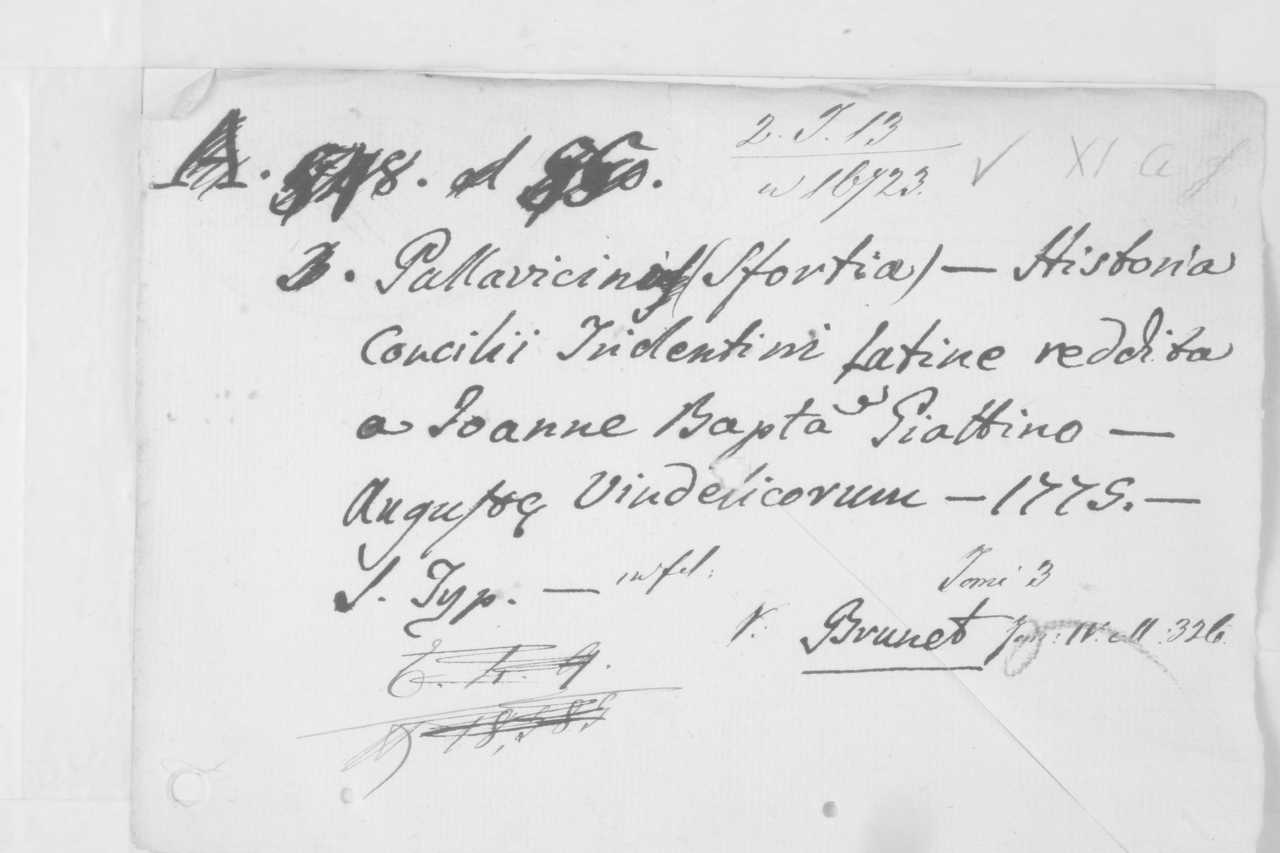 2. I. 13
n 16723. √ XI
3. Pallavicini (Sfortia) — Historia
Concilii Tridentini latine reddita
a Joanne Bapta Giattino —
Augustæ Vindelicorum — 1775. —
S. Typ. — in fol:
Tomi 3
V. Brunet